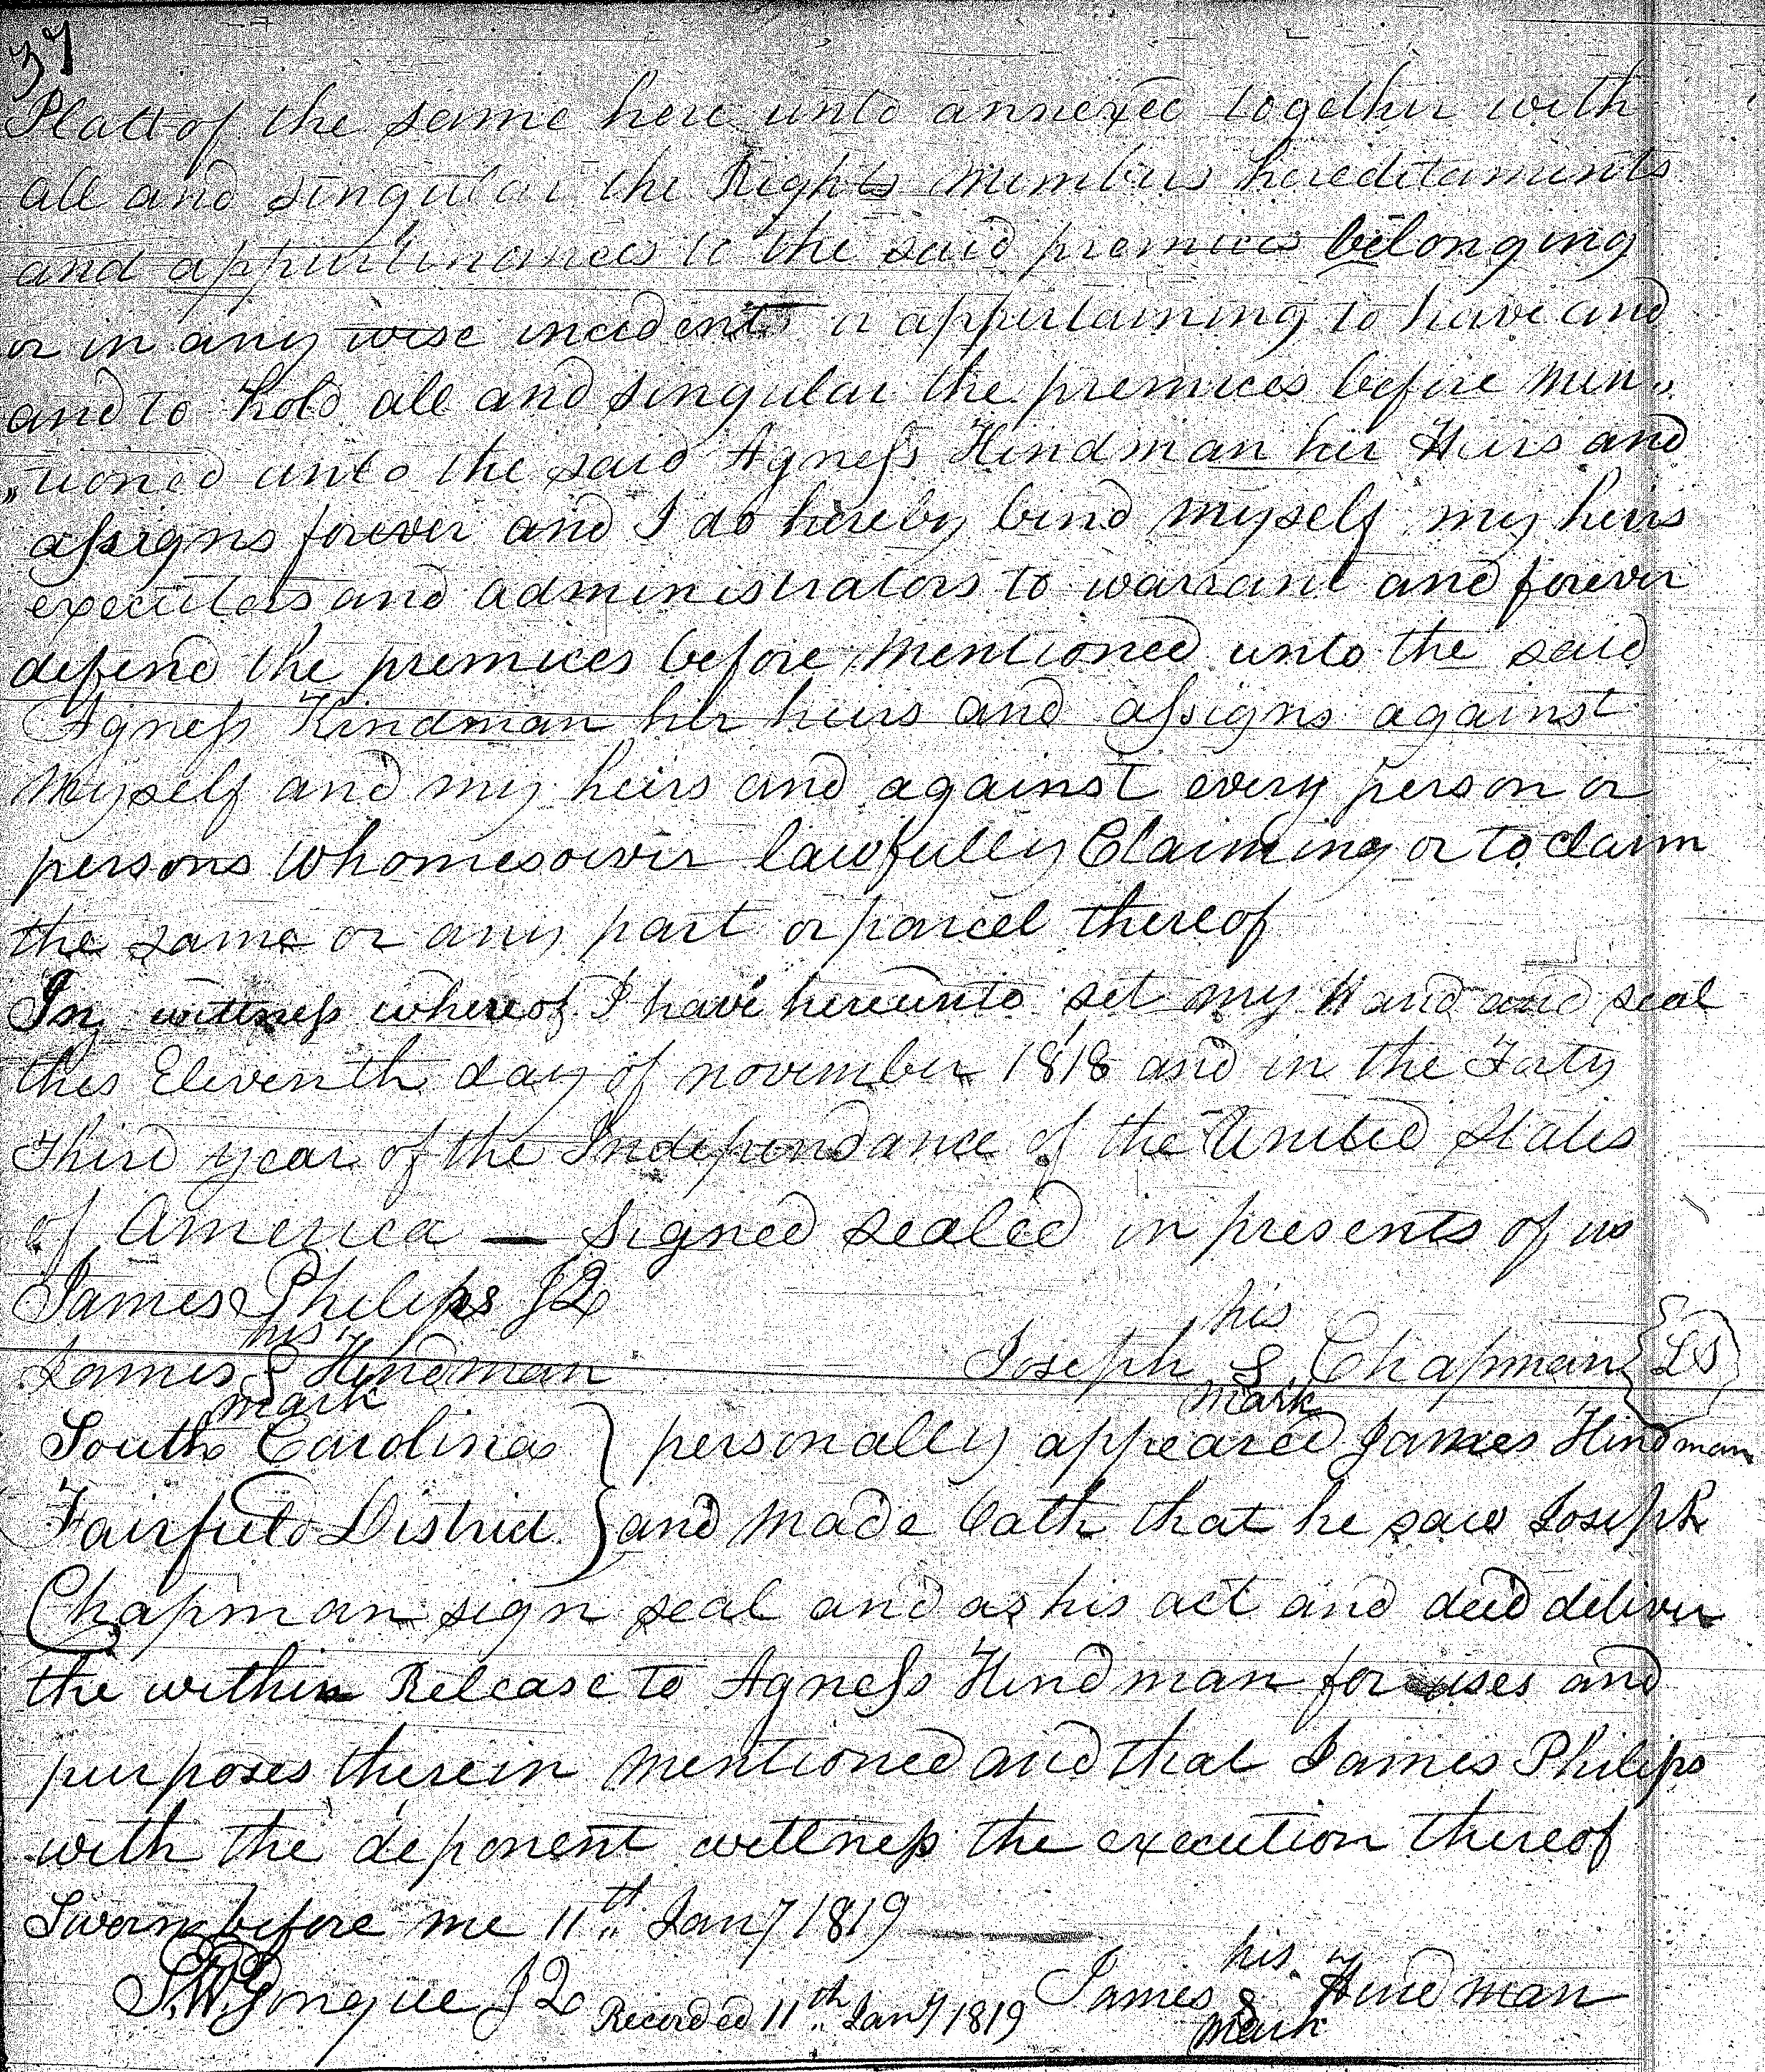 37
Platt of the same here unto annexed together with
all and singular the Rights members hereditaments
and appurtinances to the said premices belonging
or in any wise incident or appertaining to have and
and to hold all and singular the premices before men„
„tioned unto the said Agness Hindman her Heirs and
assigns forever and I do hereby bind myself my heirs
executors and administrators to warrant and forever
defend the premices before mentioned unto the said
Agness Hindman her heirs and assigns against
myself and my heirs and against every person or
persons whomesoever lawfully Claiming or to claim
the same or any part or parcel thereof
In wittness whereof I have hereunto set my Hand and seal
this Eleventh day of november 1818 and in the Forty
Third year of the Independance of the United States
of America — Signed sealed in presents of us
James Philips JQ
his his
James S Hindman Joseph S Chapman {LS}
mark mark
South Carolina } personally appeared James Hindman
Fairfield District } and made Oath that he saw Joseph
Chapman sign seal and as his act and deed deliver
the within Release to Agness Hindman for uses and
purposes therein mentioned and that James Philips
with the deponent wittness the execution thereof
Sworn before me 11th Jany 1819
his
S.W. Yongue JQ Recorded 11th Jany 1819 James S Hindman
mark